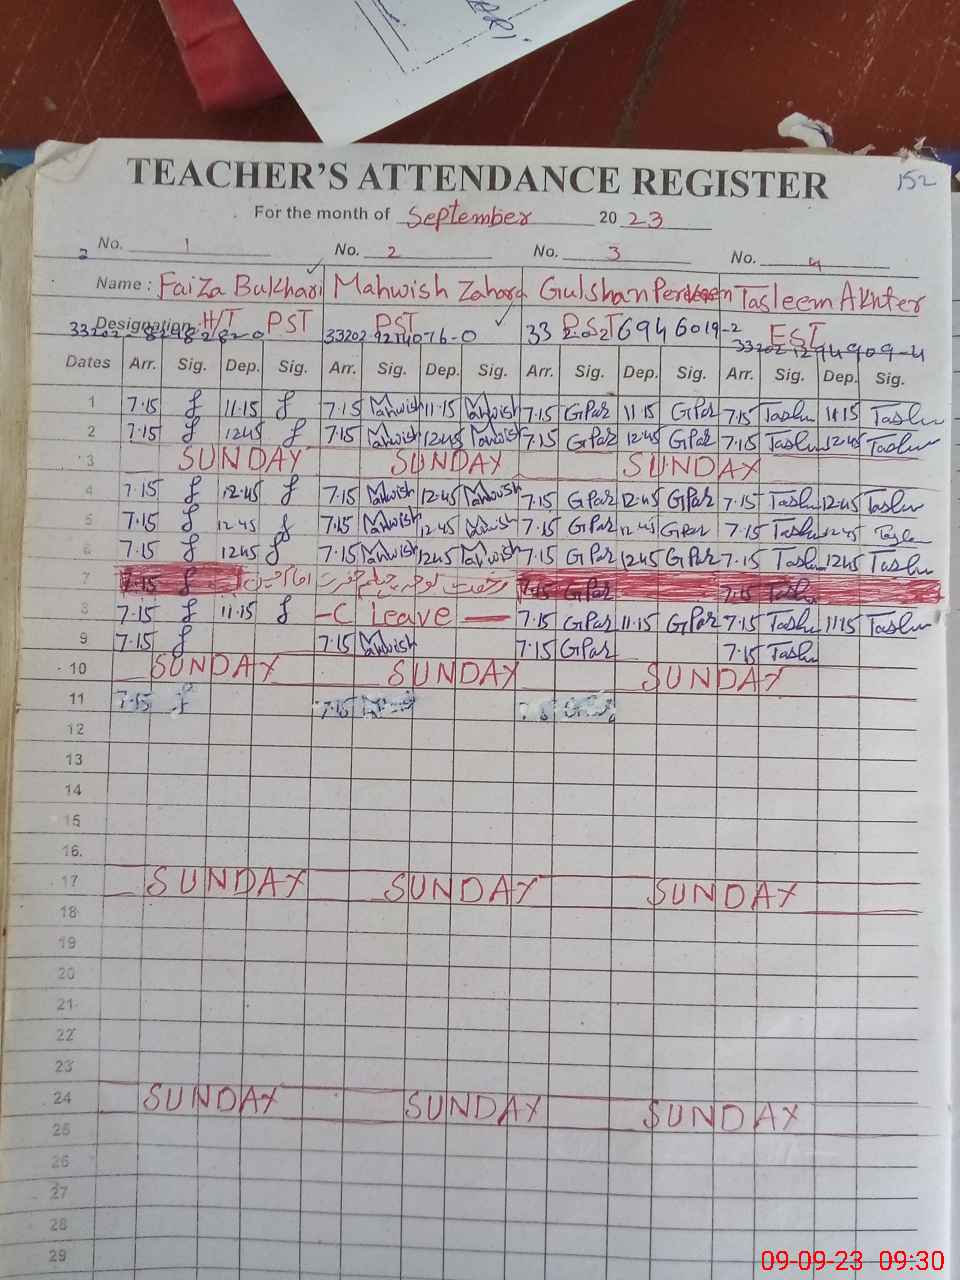 ARI
TEACHER'S ATTENDANCE REGISTER 152
For the month of September 2023
No. 1 No. 2 No. 3 No. 4
Name: Faiza Bukhari Mahwish Zahara Gulshan Perveen Tasleem Akhter
Designation: H/T PST PST PST EST
Dates Arr. Sig. Dep. Sig. Arr. Sig. Dep. Sig. Arr. Sig. Dep. Sig. Arr. Sig. Dep. Sig.
1 7.15 f 11.15 f 7.15 Mahwish 11.15 Mahwish 7.15 GPar 11.15 GPar 7.15 Taslu 11.15 Taslu
2 7.15 f 12.45 f 7.15 Mahwish 12.45 Mahwish 7.15 GPar 12.45 GPar 7.15 Taslu 12.45 Taslu
3 SUNDAY SUNDAY SUNDAY
4 7.15 f 12.45 f 7.15 Mahwish 12.45 Mahwish 7.15 GPar 12.45 GPar 7.15 Taslu 12.45 Taslu
5 7.15 f 12.45 f 7.15 Mahwish 12.45 Mahwish 7.15 GPar 12.45 GPar 7.15 Taslu 12.45 Taslu
6 7.15 f 12.45 f 7.15 Mahwish 12.45 Mahwish 7.15 GPar 12.45 GPar 7.15 Taslu 12.45 Taslu
7 7.15 f رخصت بوجہ چہلم حضرت امام حسین 7.15 GPar 7.15 Taslu
8 7.15 f 11.15 f - C Leave - 7.15 GPar 11.15 GPar 7.15 Taslu 11.15 Taslu
9 7.15 f 7.15 Mahwish 7.15 GPar 7.15 Taslu
10 SUNDAY SUNDAY SUNDAY
11 7.15 f 7.15
12
13
14
15
16
17 SUNDAY SUNDAY SUNDAY
18
19
20
21
22
23
24 SUNDAY SUNDAY SUNDAY
25
26
27
28
29
09-09-23 09:30